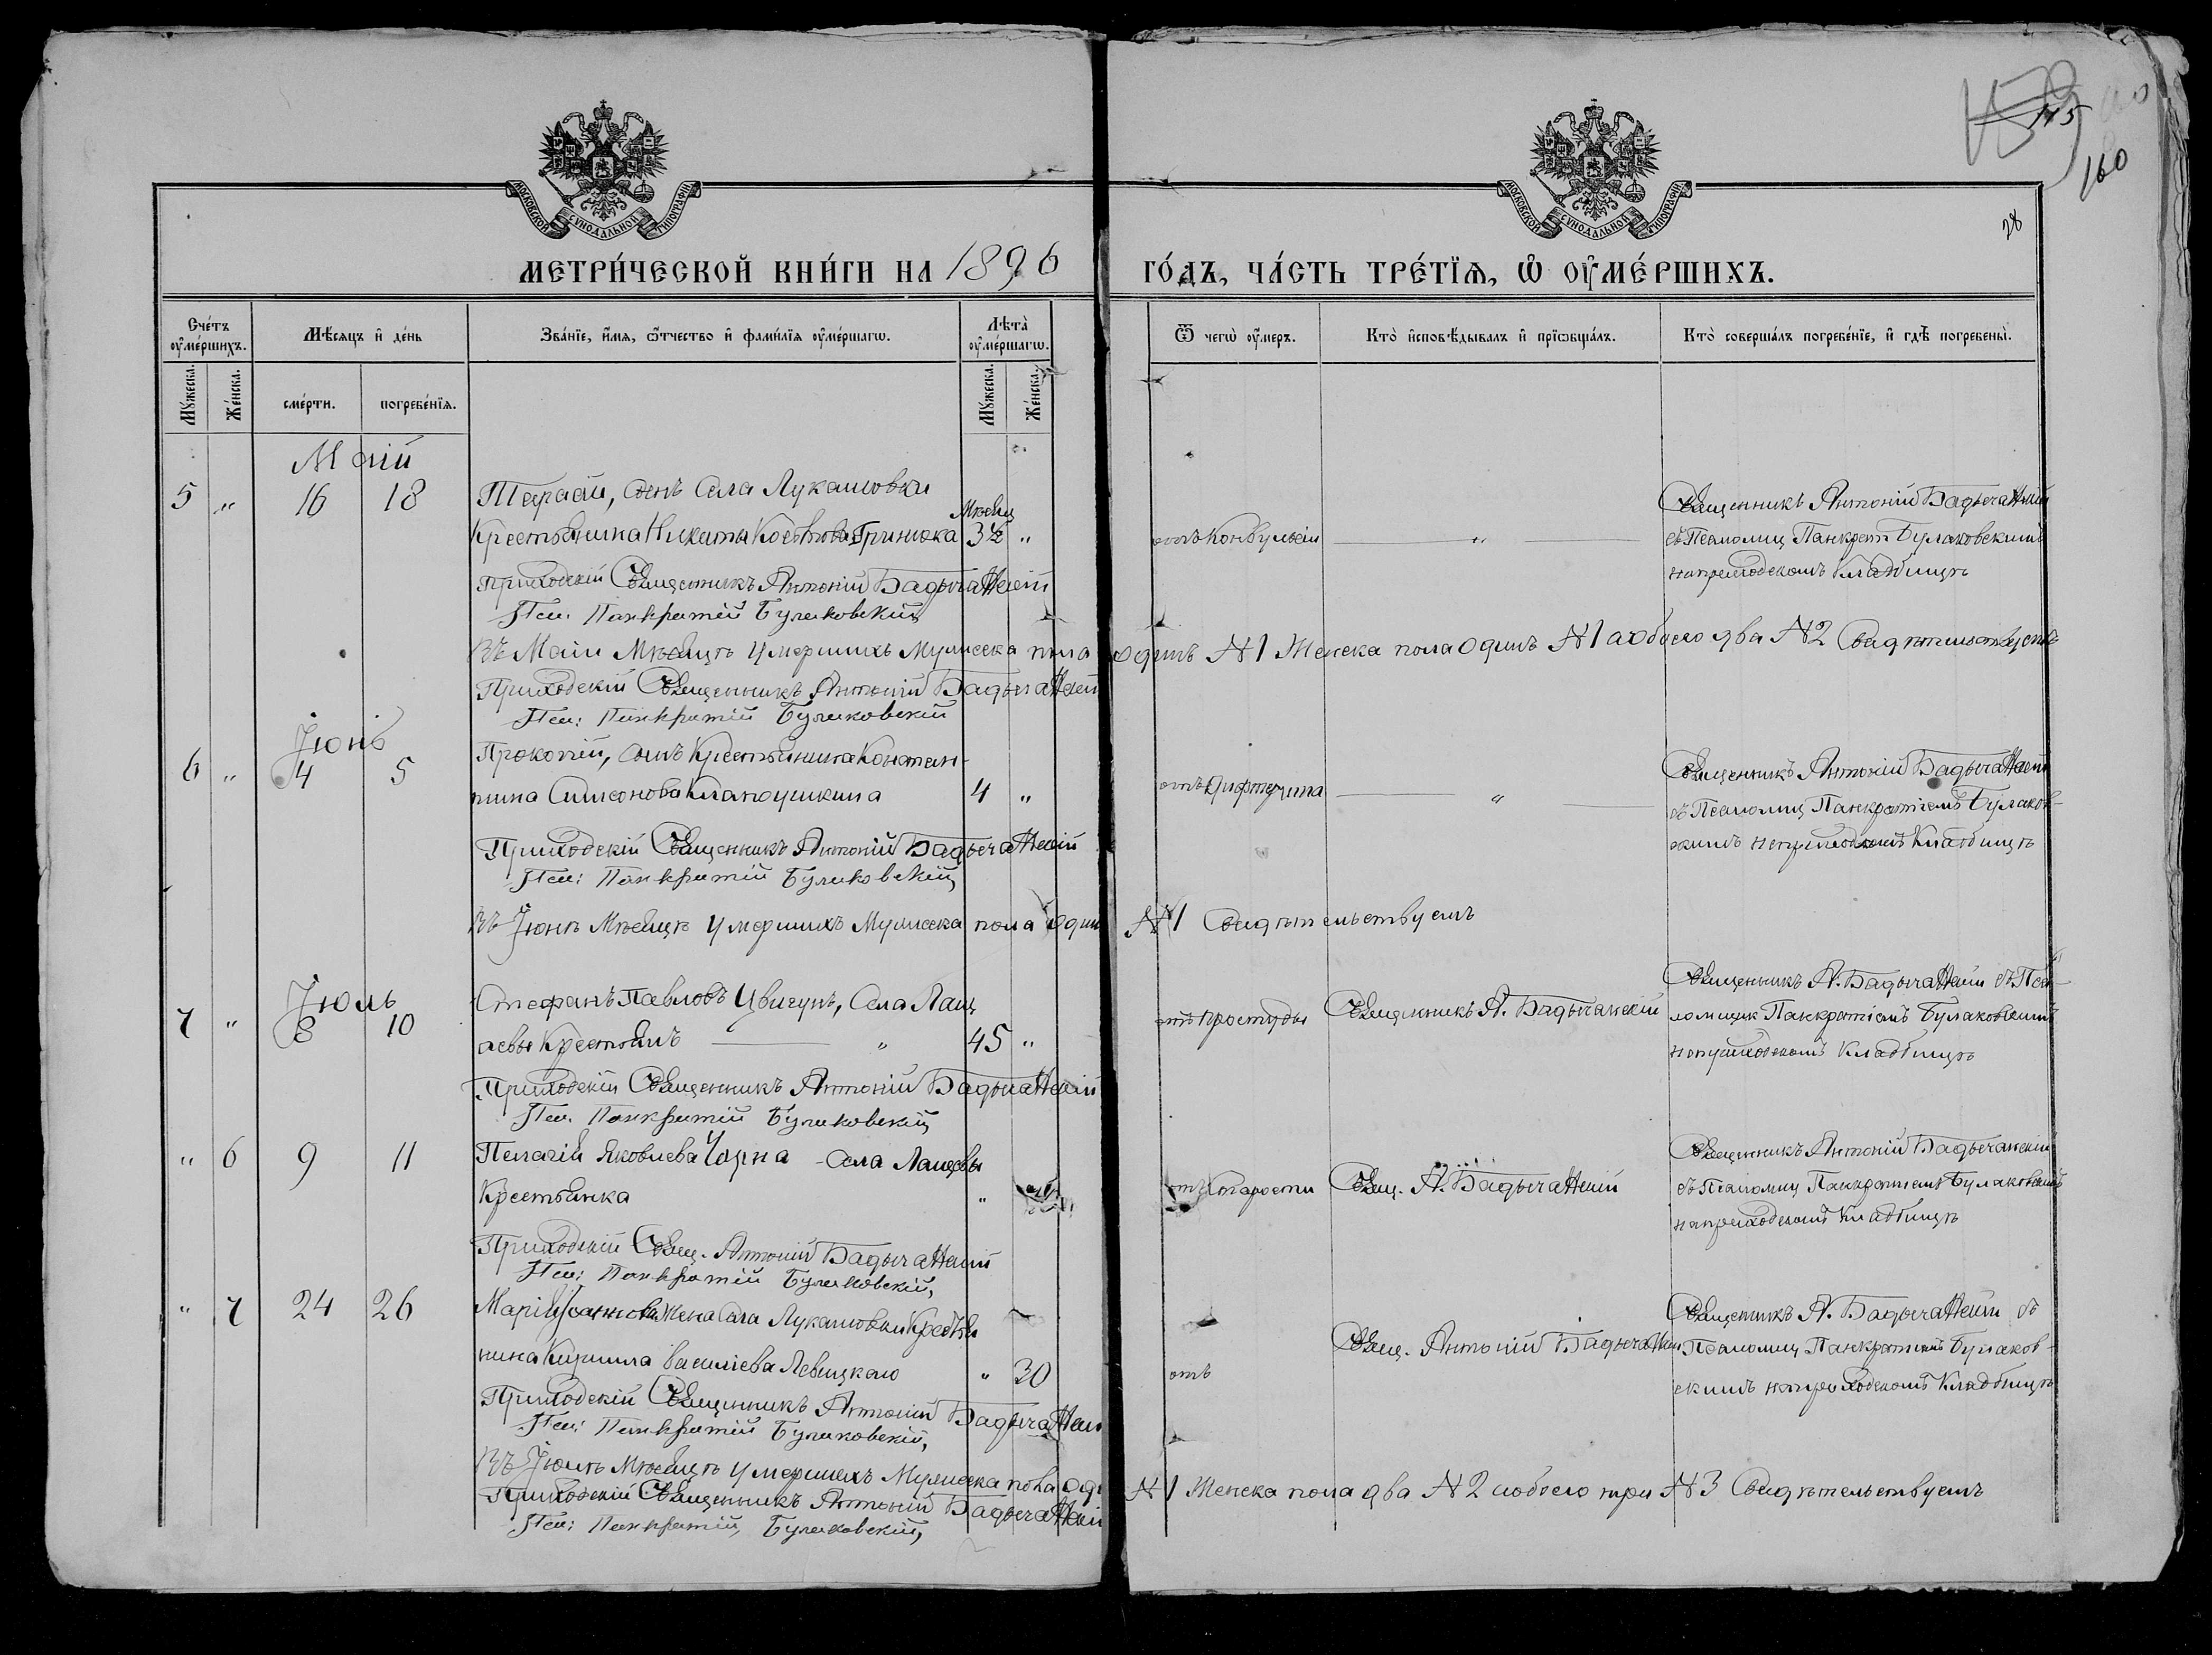 115
160
28
МОСКОВСКОЙ СѴНОДАЛЬНОЙ ТИПОГРАФІИ
МОСКОВСКОЙ СѴНОДАЛЬНОЙ ТИПОГРАФІИ
МЕТРИ́ЧЕСКОЙ КНИ́ГИ НА 1896 ГО́ДЪ, ЧА́СТЬ ТРЕ́ТЇѦ, Ѡ҆ ОУ҆МЕ́РШИХЪ.
Сче́тъ оу҆ме́ршихъ.
Мѣ́сяцъ и҆ де́нь
Зва́нїе, и҆́мѧ, ѻ҆́тчество и҆ фами́лїѧ оу҆ме́ршагѡ.
Лѣта̀ оу҆ме́ршагѡ.
Ѿ чегѡ̀ оу҆́меръ.
Кто̀ и҆сповѣ́дывалъ и҆ прїѡбща́лъ.
Кто̀ соверша́лъ погребе́нїе, и҆ гдѣ̀ погребены̀.
Мꙋ́жеска. Же́нска. сме́рти. погребе́нїѧ. Мꙋ́жеска. Же́нска.
Маій
5 " 16 18 Тарасій, сынъ Села Лукашовки
Крестьянина Никиты Гринюка Мѣсяц 3½ "
отъ Конвульсіи "
Священникъ Антоній Бадычанскій
съ Псаломщ Панкрат Булаковскимъ
на приходскомъ Кладбищѣ
Приходскій Священникъ Антоній Бадычанскій
Псал. Панкратій Булаковскій
Въ Маіи Мѣсяцѣ умершихъ Мужеска пола одинъ №1 Женска пола одинъ №1 а обоего два №2 Свидѣтельствуемъ
Приходскій Священникъ Антоній Бадычанскій
Псал: Панкратій Булаковскій
Іюнь
6 " 4 5 Прокопій, сынъ Крестьянина Констан-
тина Самсонова 4 "
отъ Дифтерита "
Священникъ Антоній Бадычанскій
съ Псаломщ Панкратіемъ Булаков-
скимъ на приходскомъ Кладбищѣ
Приходскій Священникъ Антоній Бадычанскій
Псал: Панкратій Булаковскій
Въ Іюнѣ Мѣсяцѣ умершихъ Мужеска пола один №1 Свидѣтельствуемъ
Іюль
7 " 8 10 Стефанъ Павловъ Цвигунъ, Села Лащ
евы Крестьянъ " 45 "
отъ простуды
Священникъ А. Бадычанскій
Священникъ А. Бадычанскій съ Пса-
ломщик Панкратіемъ Булаковскимъ
на приходскомъ Кладбищѣ
Приходскій Священникъ Антоній Бадычанскій
Псал. Панкратій Булаковскій
" 6 9 11 Пелагія Яковлева Чорна Села Лащевы
Крестьянка "
отъ Старости
Свящ. А. Бадычанскій
Священникъ Антоній Бадычанскій
съ Псаломщ Панкратіемъ Булаковскимъ
на приходскомъ Кладбищѣ
Приходскій Свящ. Антоній Бадычанскій
Псал: Панкратій Булаковскій
" 7 24 26 Марія Іоаннова Жена Села Лукашовки Крестья
нина Кирилла Василіева Левицкаго " 30
отъ
Свящ. Антоній Бадычанскій
Священникъ А. Бадычанскій съ
Псаломщ Панкратіемъ Булаков-
скимъ на приходскомъ Кладбищѣ
Приходскій Священникъ Антоній Бадычанскій
Псал: Панкратій Булаковскій
Въ Іюлѣ Мѣсяцѣ умершихъ Мужеска пола оди №1 Женска пола два №2 а обоего три №3 Свидѣтельствуемъ
Приходскій Священникъ Антоній Бадычанскій
Псал: Панкратій Булаковскій